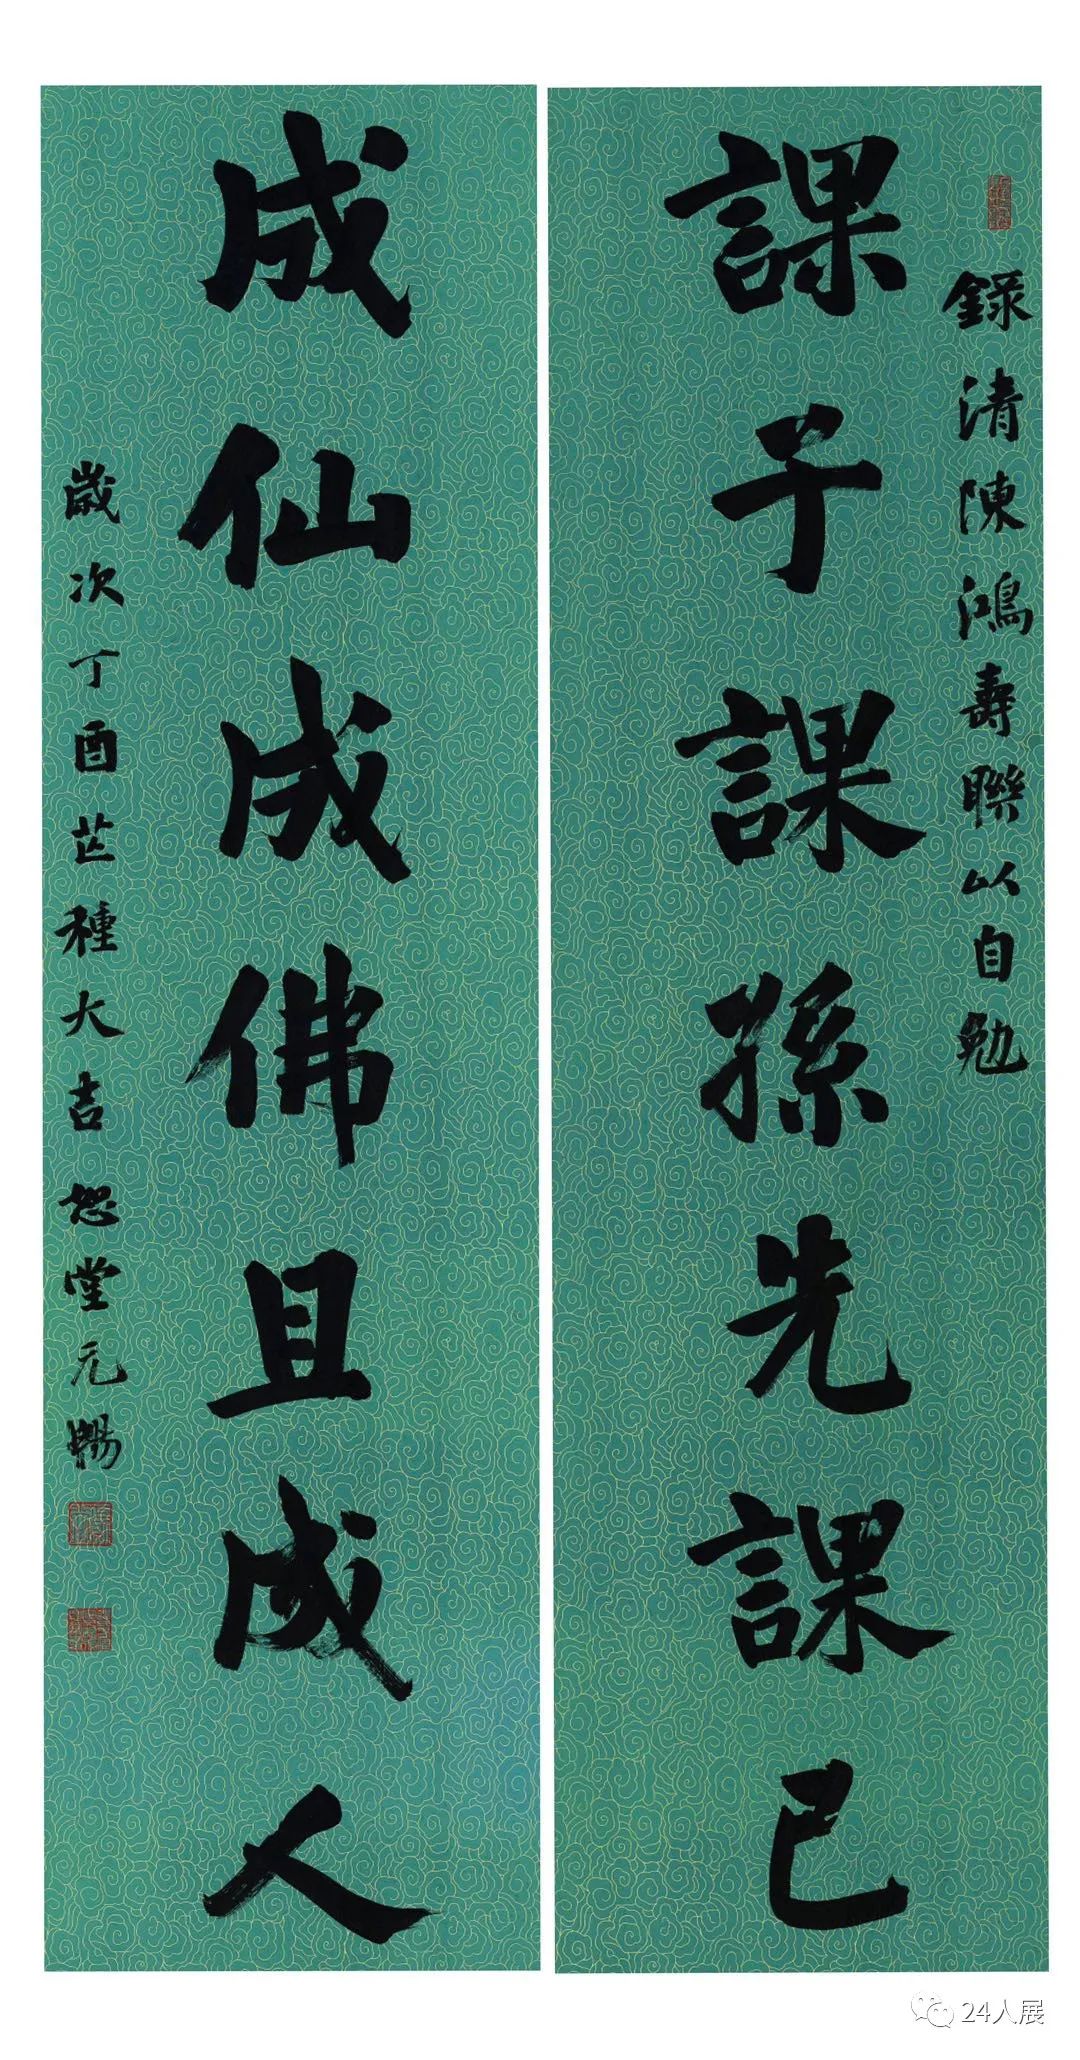 錄清陳鴻壽聯以自勉
課子課孫先課己
成仙成佛且成人
歲次丁酉芒種大吉恕堂元暢
24人展